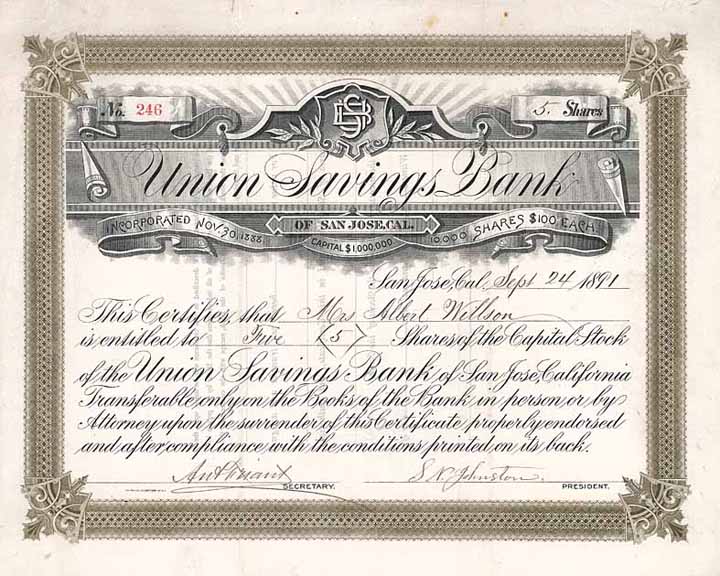 No. 246
USB
5 Shares
Union Savings Bank
INCORPORATED NOV. 30, 1888.
OF SAN JOSE, CAL.
10,000 SHARES $100 EACH
CAPITAL $1,000,000
San Jose, Cal. Sept 24 1891
This Certifies, that Mrs Albert Willson
is entitled to Five (5) Shares of the Capital Stock
of the Union Savings Bank of San Jose, California
Transferable only on the Books of the Bank in person or by
Attorney upon the surrender of this Certificate properly endorsed
and after compliance with the conditions printed on its back.
SECRETARY.
PRESIDENT.